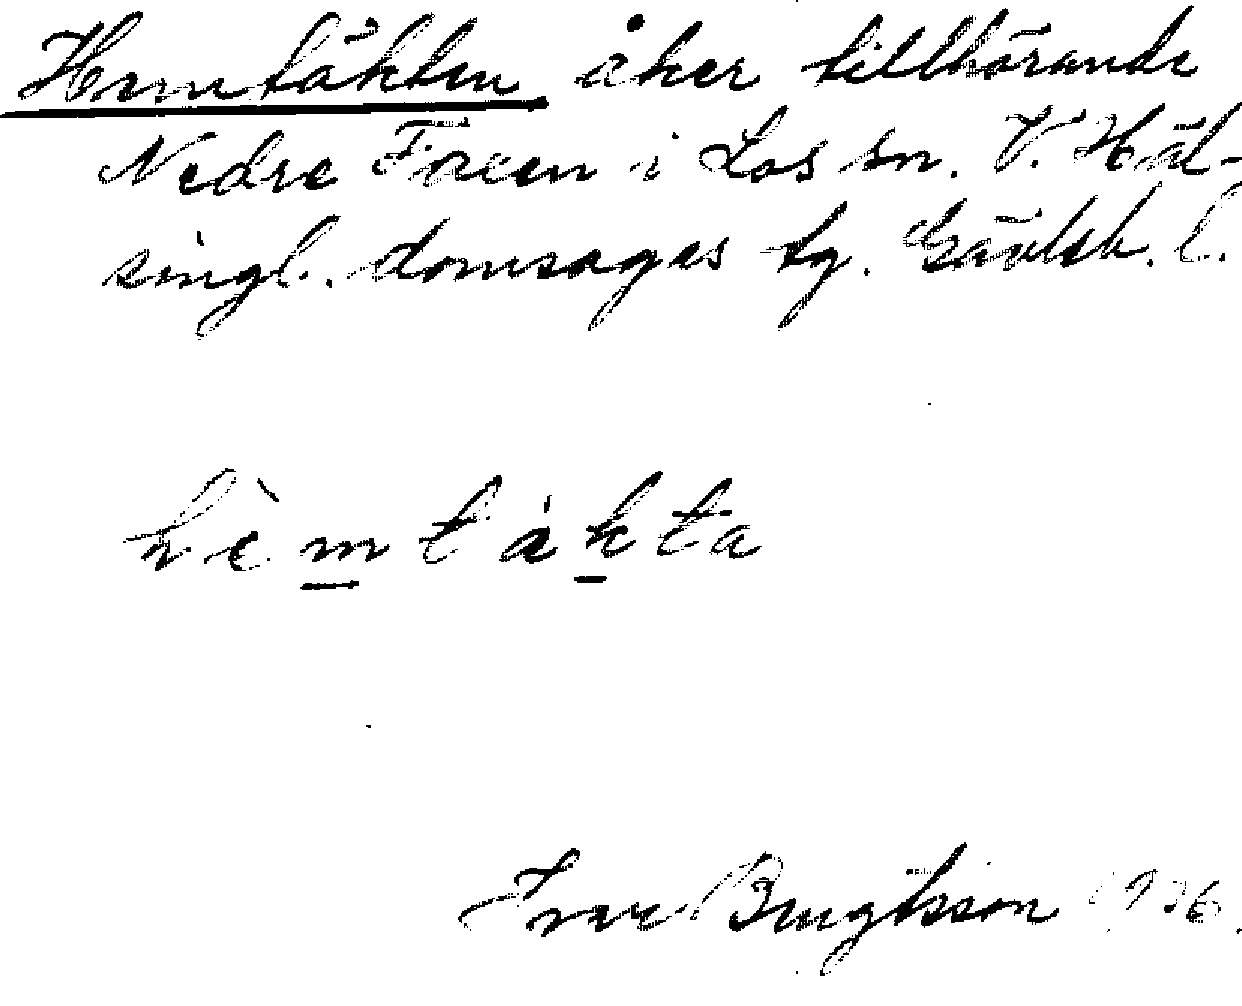 Hemtäkten åker tillhörande
Nedre Fåren i Los sn. V. Häl-
singl. domsagas tg. Gävleb. l.
hèmtákta
Ivar Bengtsson 1936.